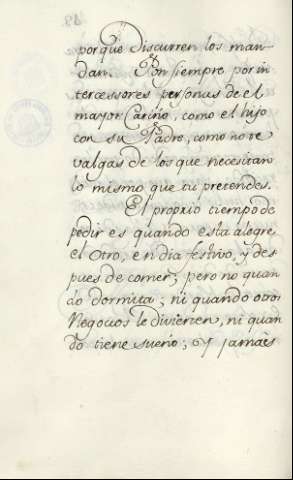 porque discurren los man-
dan. Pon siempre por in
tercessores personas de el
mayor Cariño, como el hijo
con su Padre, como no te
valgas de los que necesitan
lo mismo que tu pretendes.
El proprio tiempo de
pedir es quando esta alegre
el otro, en dia festivo, y des
pues de comer; pero no quan
do dormita; ni quando otros
Negocios le divierten, ni quan
do tiene sueño; y jamàs